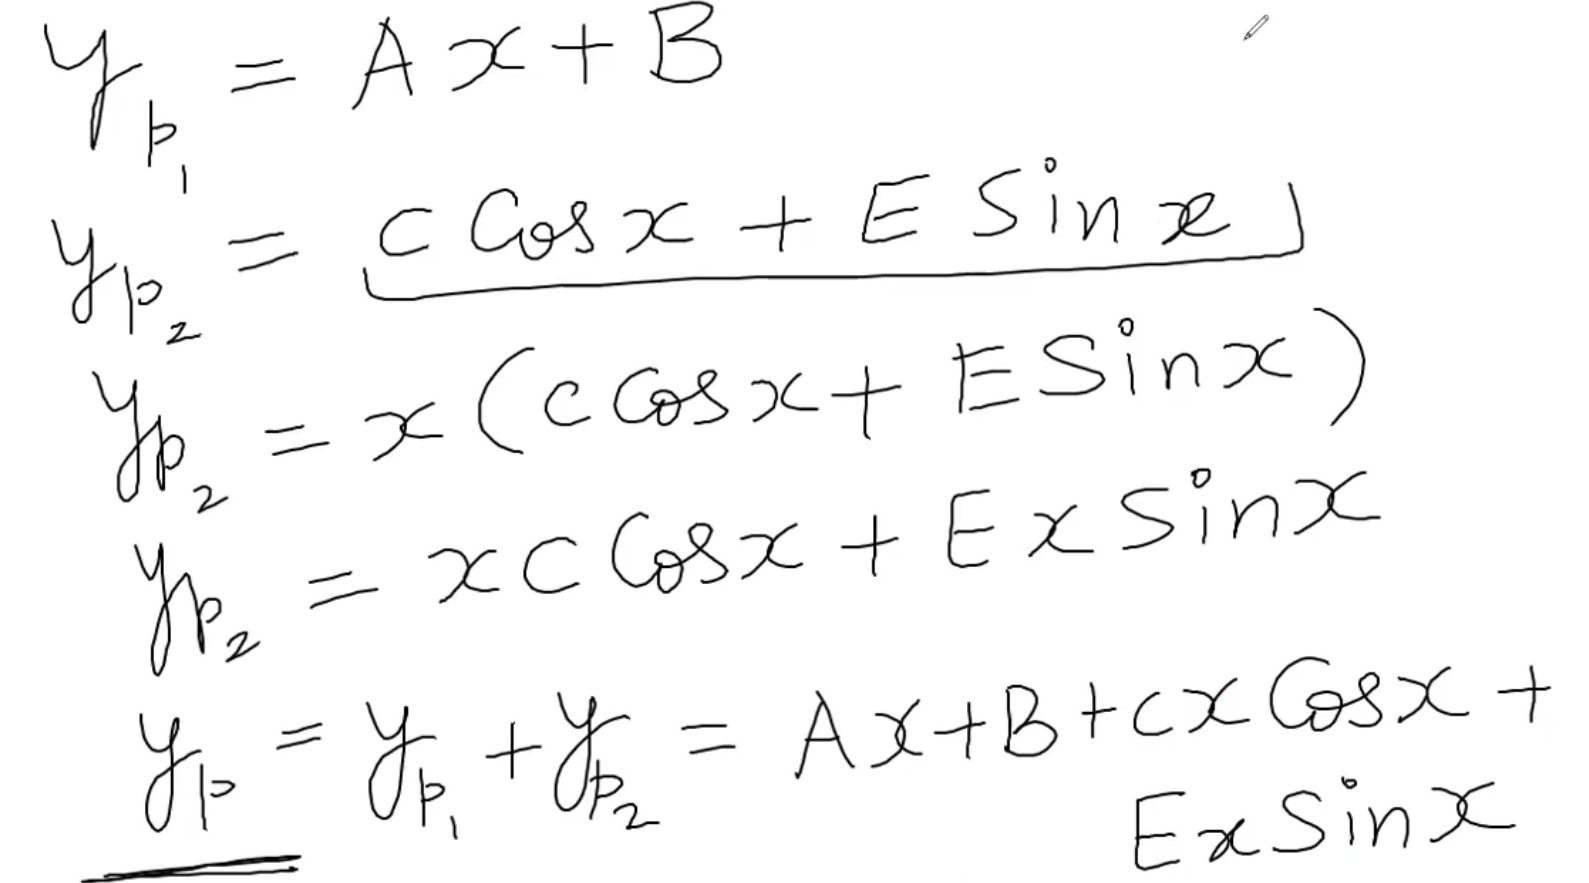 y_{p_1} = Ax + B
y_{p_2} = c Cosx + E Sinx
y_{p_2} = x (c Cosx + E Sinx)
y_{p_2} = xc Cosx + Ex Sinx
y_p = y_{p_1} + y_{p_2} = Ax + B + cx Cosx +
Ex Sinx